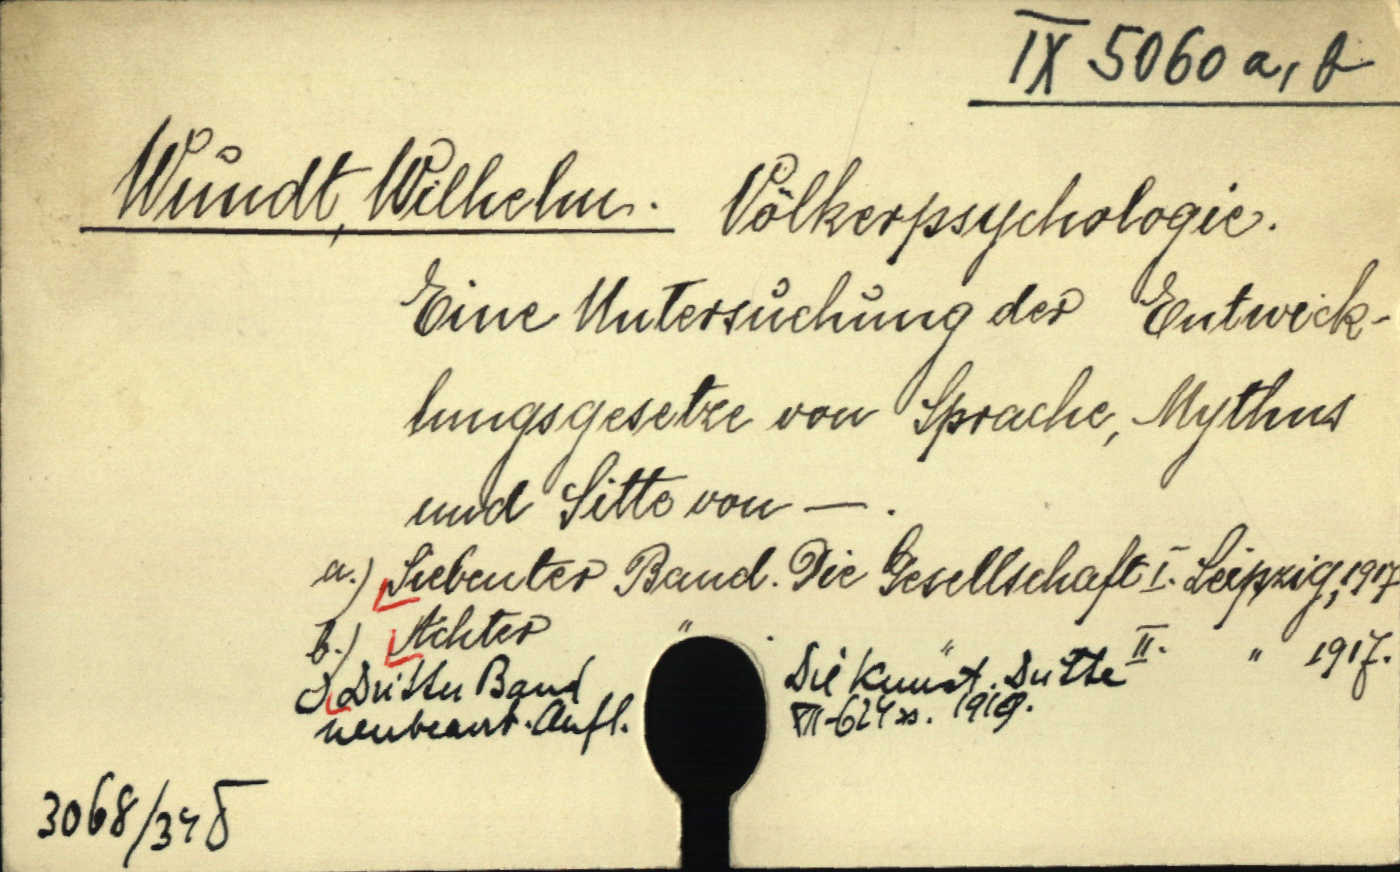 IX 5060 a, b
Wundt, Wilhelm. Völkerpsychologie.
Eine Untersuchung der Entwick-
lungsgesetze von Sprache, Mythus
und Sitte von — .
a.) Siebenter Band. Die Gesellschaft I. Leipzig, 1917
b.) Achter " . " II. " 1917.
c) Dritter Band Die Kunst. Dritte
neubearb. Aufl. XII-624 S. 1919.
3068/34